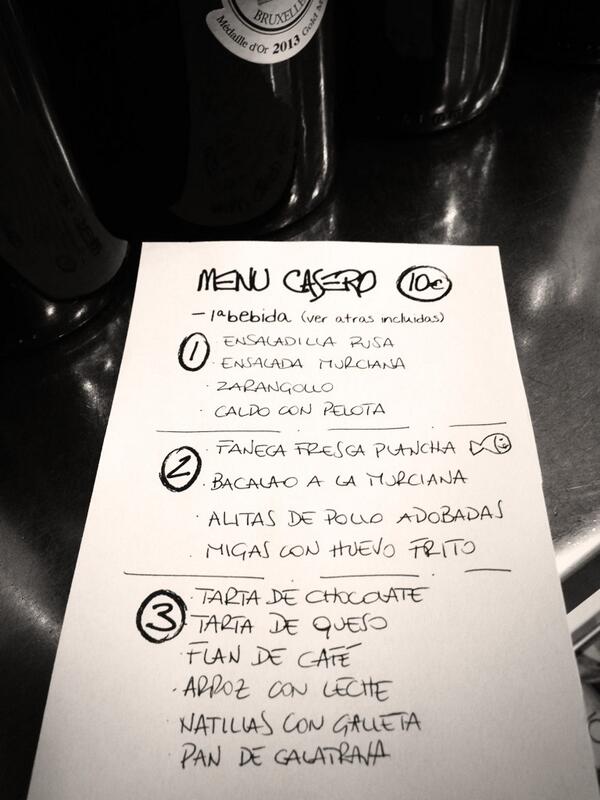 BRUXELLE
Médaille d'Or 2013 Gold M
MENU CASERO 10€
- 1ª bebida (ver atras incluidas)
1
· ENSALADILLA RUSA
· ENSALADA MURCIANA
· ZARANGOLLO
· CALDO CON PELOTA
2
· FANECA FRESCA PLANCHA
· BACALAO A LA MURCIANA
· ALITAS DE POLLO ADOBADAS
· MIGAS CON HUEVO FRITO
3
· TARTA DE CHOCOLATE
· TARTA DE QUESO
· FLAN DE CAFÉ
· ARROZ CON LECHE
· NATILLAS CON GALLETA
· PAN DE CALATRAVA